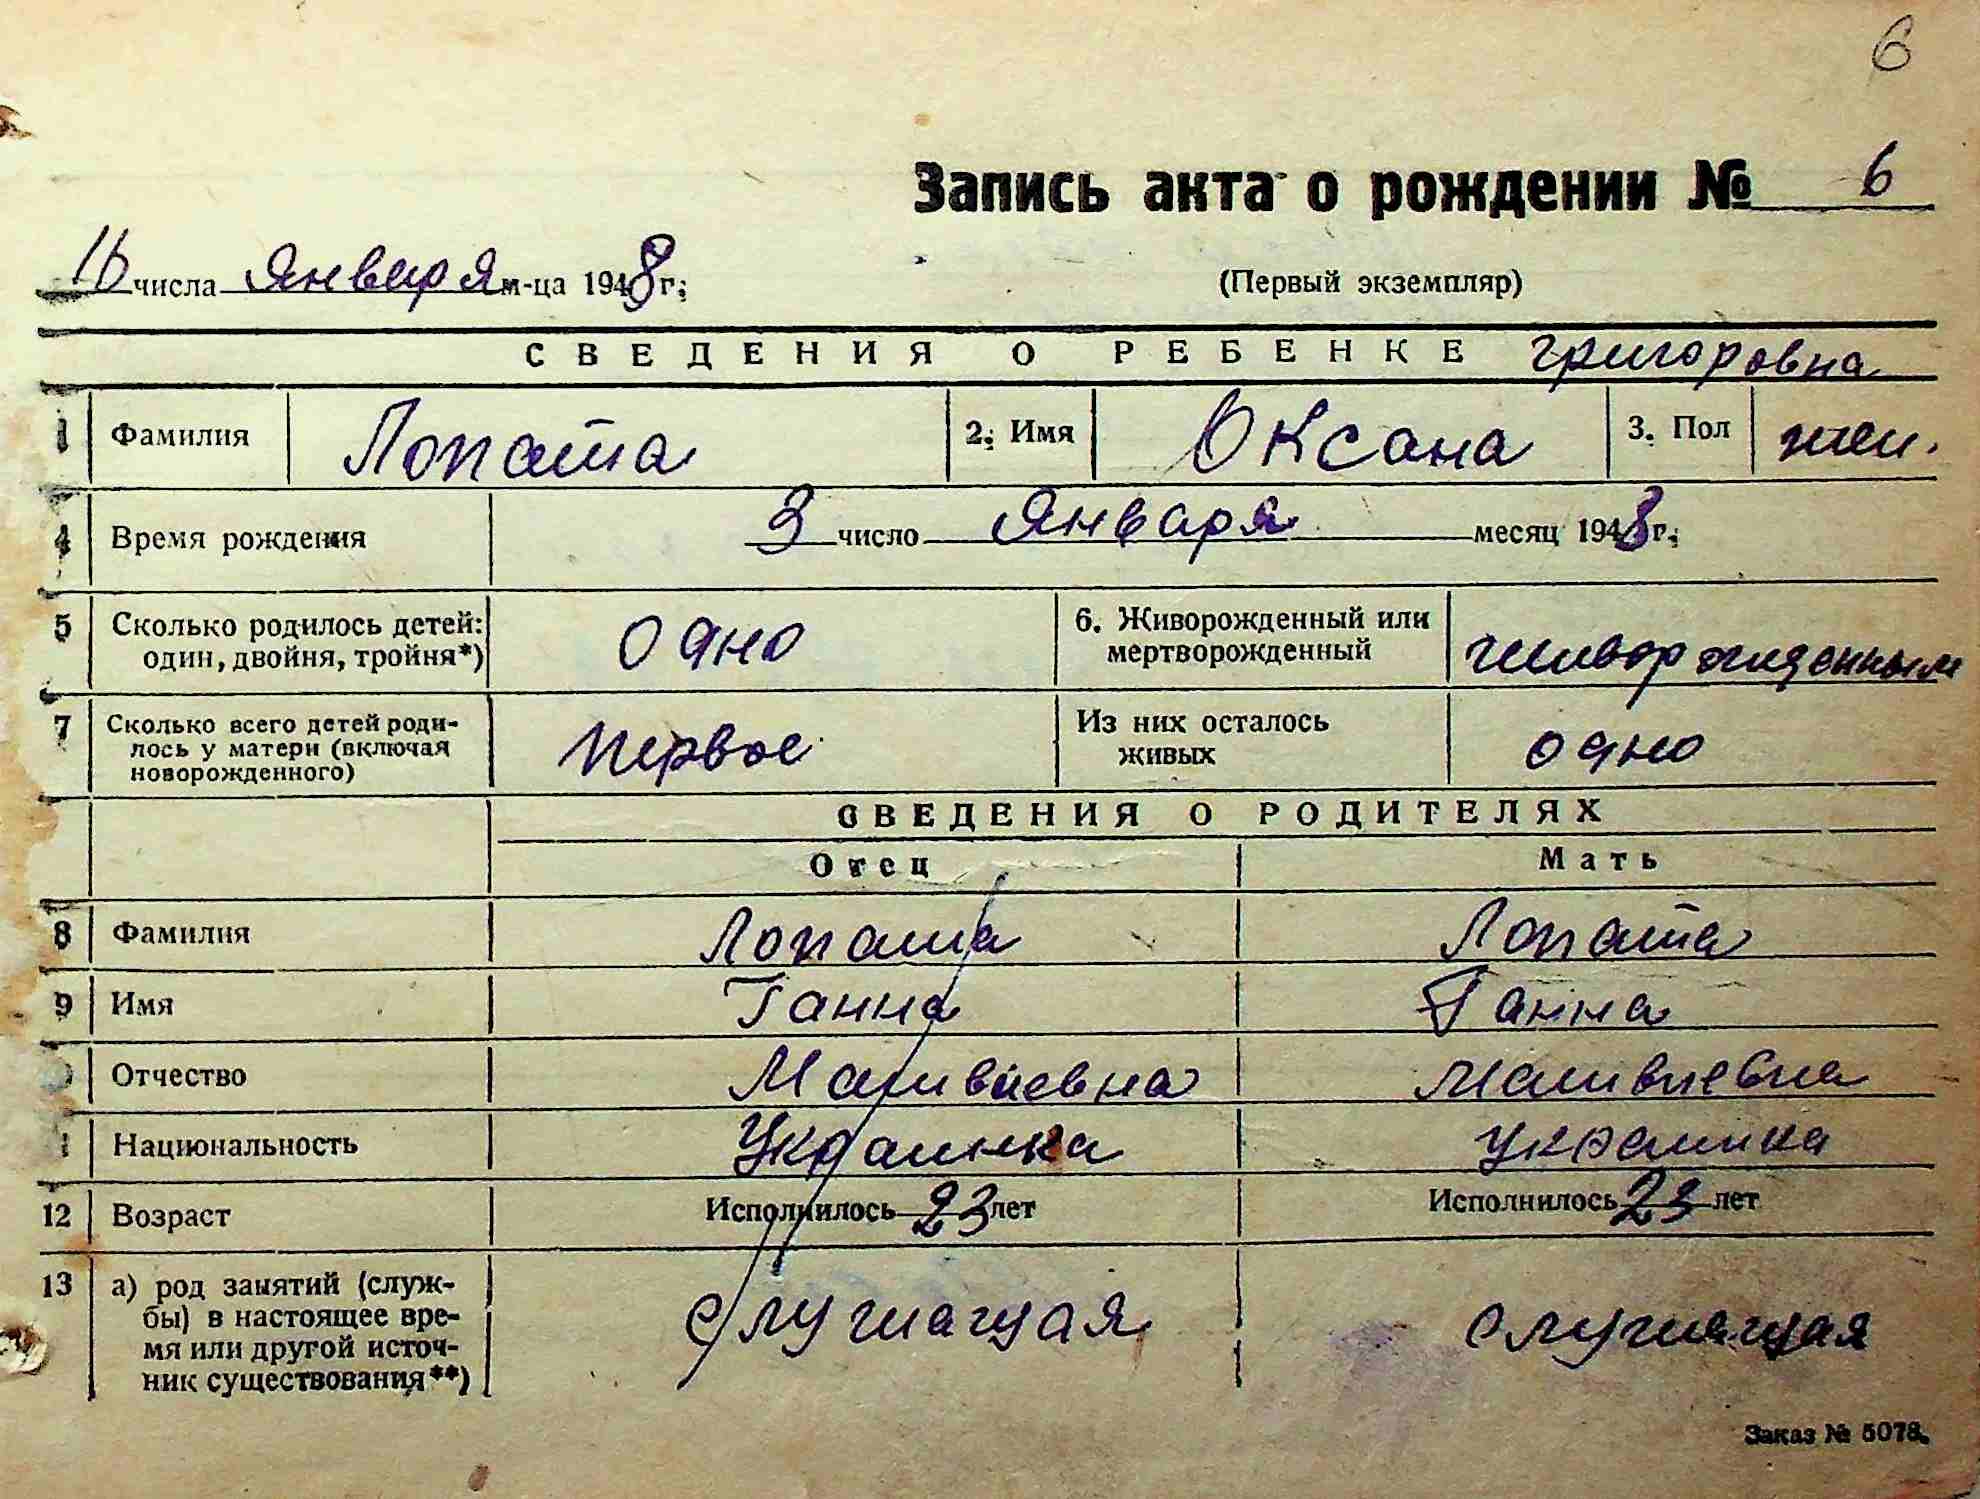 6
Запись акта о рождении № 6
16 числа января м-ца 1948 г.
(Первый экземпляр)
СВЕДЕНИЯ О РЕБЕНКЕ Григоровна
1 Фамилия Лопата 2. Имя Оксана 3. Пол жен.
4 Время рождения 3 число января месяц 1948 г.
5 Сколько родилось детей: один, двойня, тройня*) одно 6. Живорожденный или мертворожденный живорожденным
7 Сколько всего детей роди-
лось у матери (включая
новорожденного) первое Из них осталось живых одно
СВЕДЕНИЯ О РОДИТЕЛЯХ
Отец Мать
8 Фамилия Лопата Лопата
9 Имя Ганна Ганна
Отчество Матвиевна Матвиевна
Национальность Украинка украинка
12 Возраст Исполнилось 23 лет Исполнилось 23 лет
13 а) род занятий (служ-
бы) в настоящее вре-
мя или другой источ-
ник существования**) служащая служащая
Заказ № 5078.